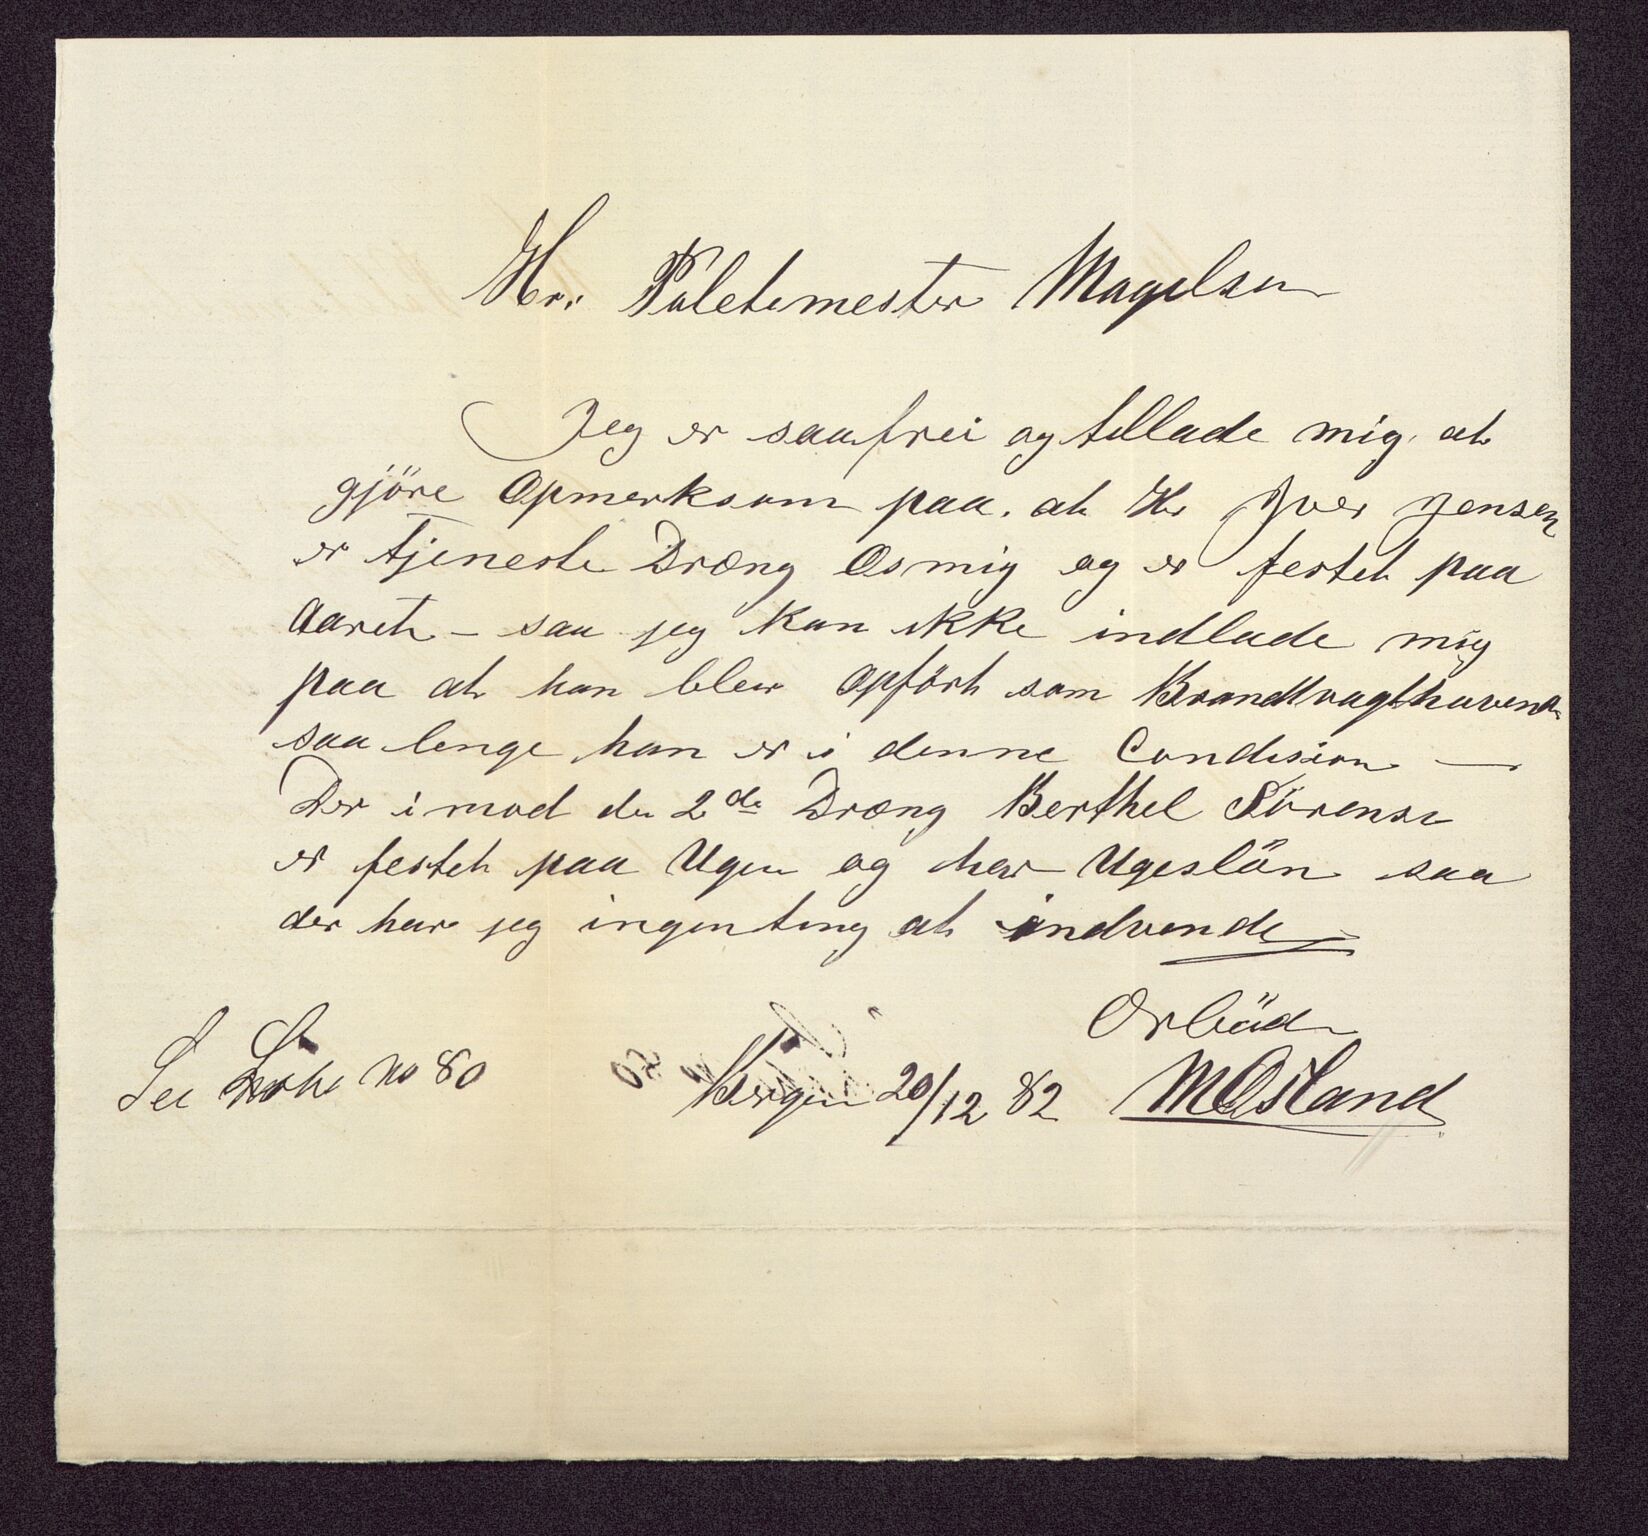 Hr. Poletimester Magelsen
Jeg er saa frei og tillade mig at
gjöre Opmerksom paa. at Hr Iver Jensen
er tjeneste Dræng Os mig og er festet paa
Aaret – saa jeg kan ikke indlade mig
paa at han blev Opfört som Brandvagthavende
saa lenge han er i denne Condision —
Der i mod den 2de Dræng Berthel Sörensen
er festet paa Ugen og har Ugeslön saa
der har jeg ingenting at indvende
Örböd
See No 80
Bergen 20/12 82 MOsland